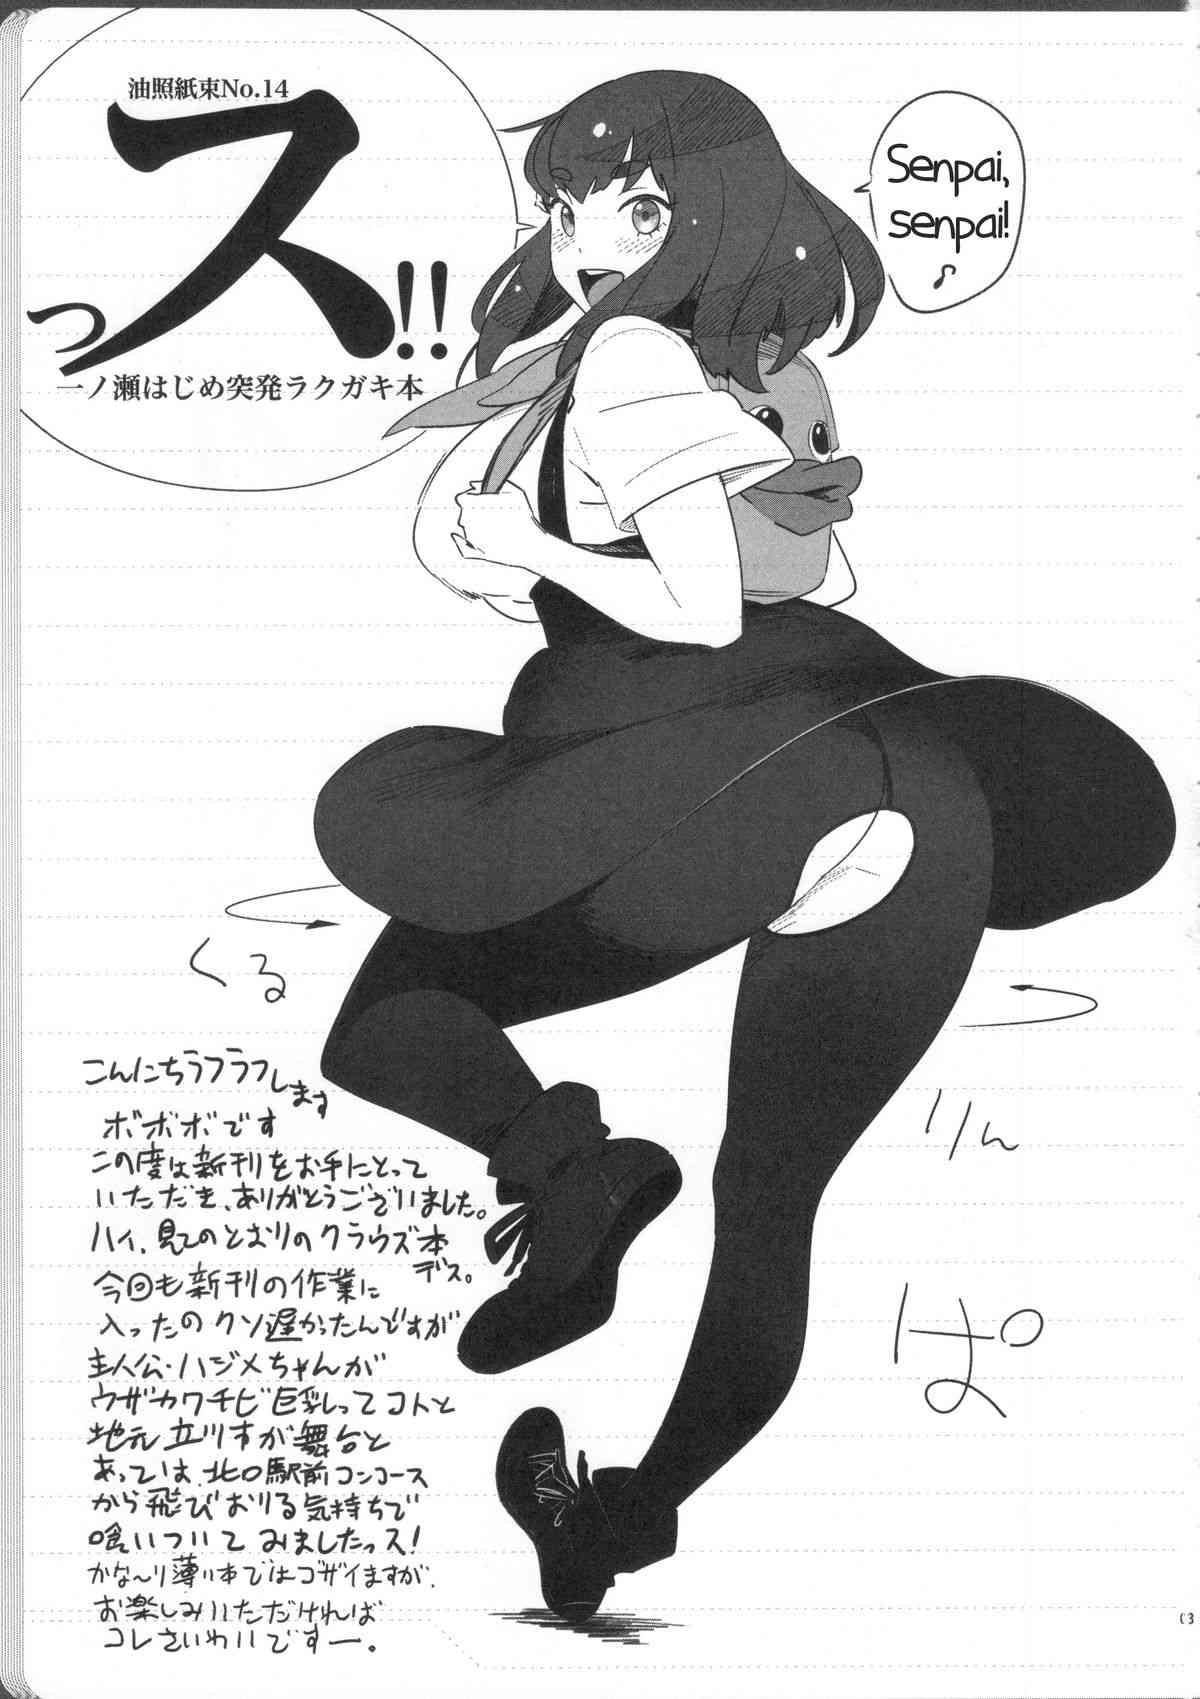 油照紙束No.14
っス!!
一ノ瀬はじめ突発ラクガキ本
Senpai,
senpai!
くる
りん
ぱ
こんにちラフラフします
ボボボです
この度は新刊をお手にとって
いただき、ありがとうございました。
ハイ、見てのとおりのクラウズ本
デス。
今回も新刊の作業に
入ったのクソ遅かったんですが
主人公・ハジメちゃんが
ウザカワチビ巨乳ってコトと
地元立川市が舞台と
あっては、北口駅前コンコース
から飛びおりる気持ちで
喰いついてみましたっス!
かな〜り薄い本ではゴザイますが、
お楽しみいただければ
コレさいわいですー。
03